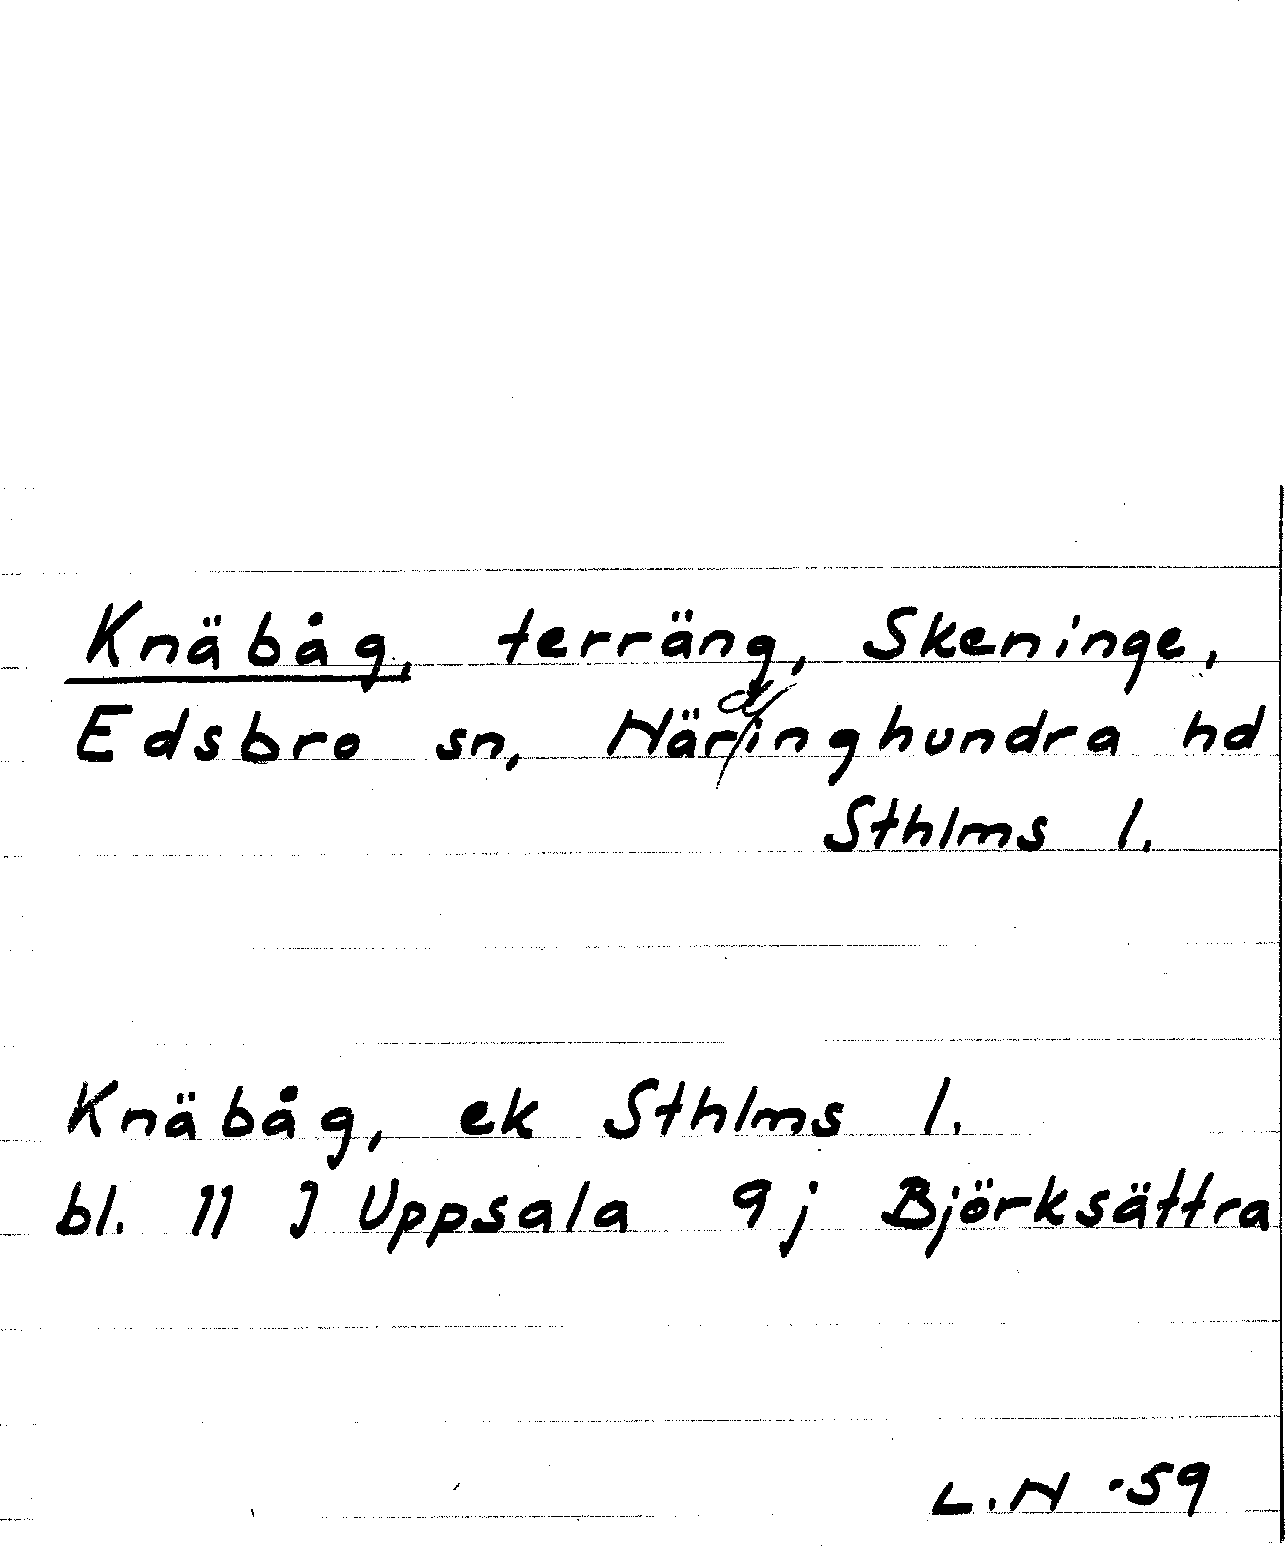 Knäbåg, terräng, Skeninge,
Edsbro sn, Närdinghundra hd
Sthlms l.
Knäbåg, ek Sthlms l.
bl. 11 J Uppsala 9 j Björksättra
L.N -59